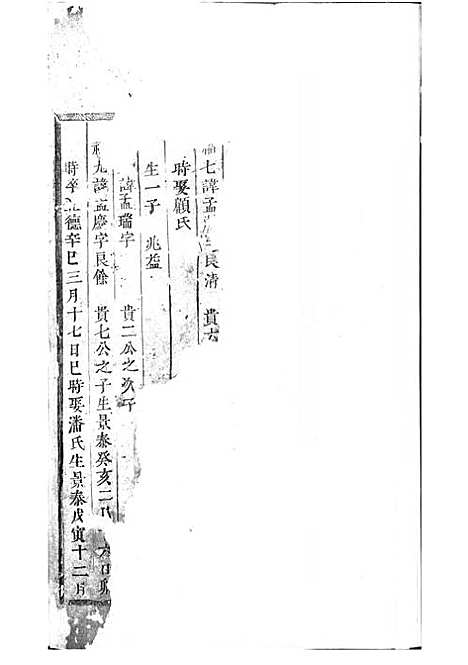 七諱孟良清 貴六
時娶顧氏
生一子 兆益
諱孟瑞字 貴二公之次子
九諱孟慶字良餘 貴七公之子生景泰癸亥二月 六日
時卒正德辛巳三月十七日巳時娶潘氏生景泰戊寅十二月